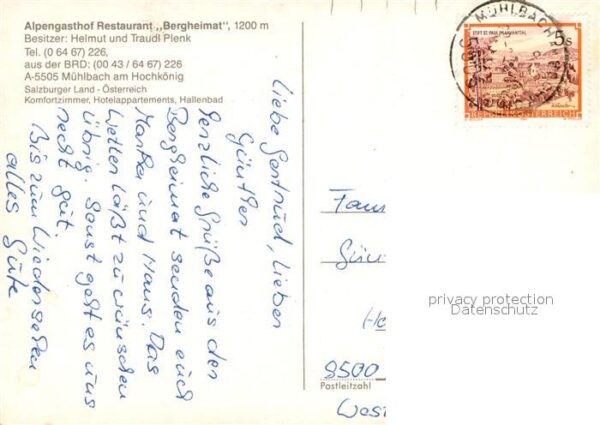 Alpengasthof Restaurant „Bergheimat“, 1200 m
Besitzer: Helmut und Traudl Plenk
Tel. (0 64 67) 226,
aus der BRD: (00 43 / 64 67) 226
A-5505 Mühlbach am Hochkönig
Salzburger Land - Österreich
Komfortzimmer, Hotelappartements, Hallenbad
Liebe Gertrud, Lieber
Günther
Herzliche Grüße aus der
Bergheimat senden euch
Marika und Hans. Das
Wetter läßt zu wünschen
übrig. Sonst geht es uns
recht gut.
Bis zum Wiedersehen
alles Gute
MÜHLBACH
STIFT ST. PAUL IM LAVANTTAL
5 S
REPUBLIK ÖSTERREICH
Fam
Gün
privacy protection
Datenschutz
8500
Postleitzahl
West